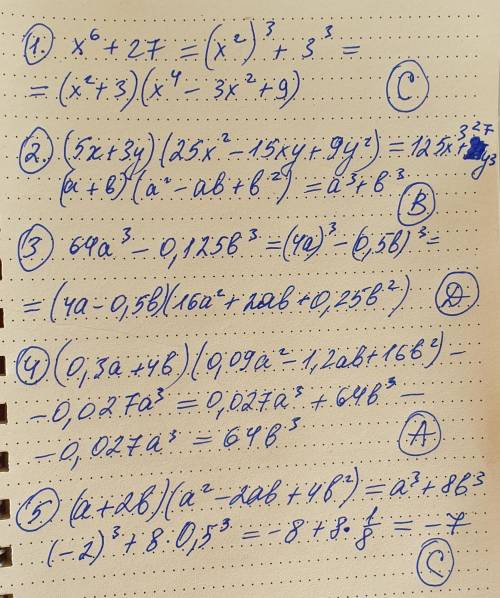 1. x⁶ + 27 = (x²)³ + 3³ =
= (x²+3)(x⁴ - 3x² + 9) C
2. (5x+3y)(25x² - 15xy + 9y²) = 125x³ + 27y³
(a + b)(a² - ab + b²) = a³ + b³
B
3 64a³ - 0,125b³ = (4a)³ - (0,5b)³ =
= (4a - 0,5b)(16a² + 2ab + 0,25b²) D
4 (0,3a + 4b)(0,09a² - 1,2ab + 16b²) -
- 0,027a³ = 0,027a³ + 64b³ -
- 0,027a³ = 64b³ A
5. (a + 2b)(a² - 2ab + 4b²) = a³ + 8b³
(-2)³ + 8·0,5³ = -8 + 8·1/8 = -7
C